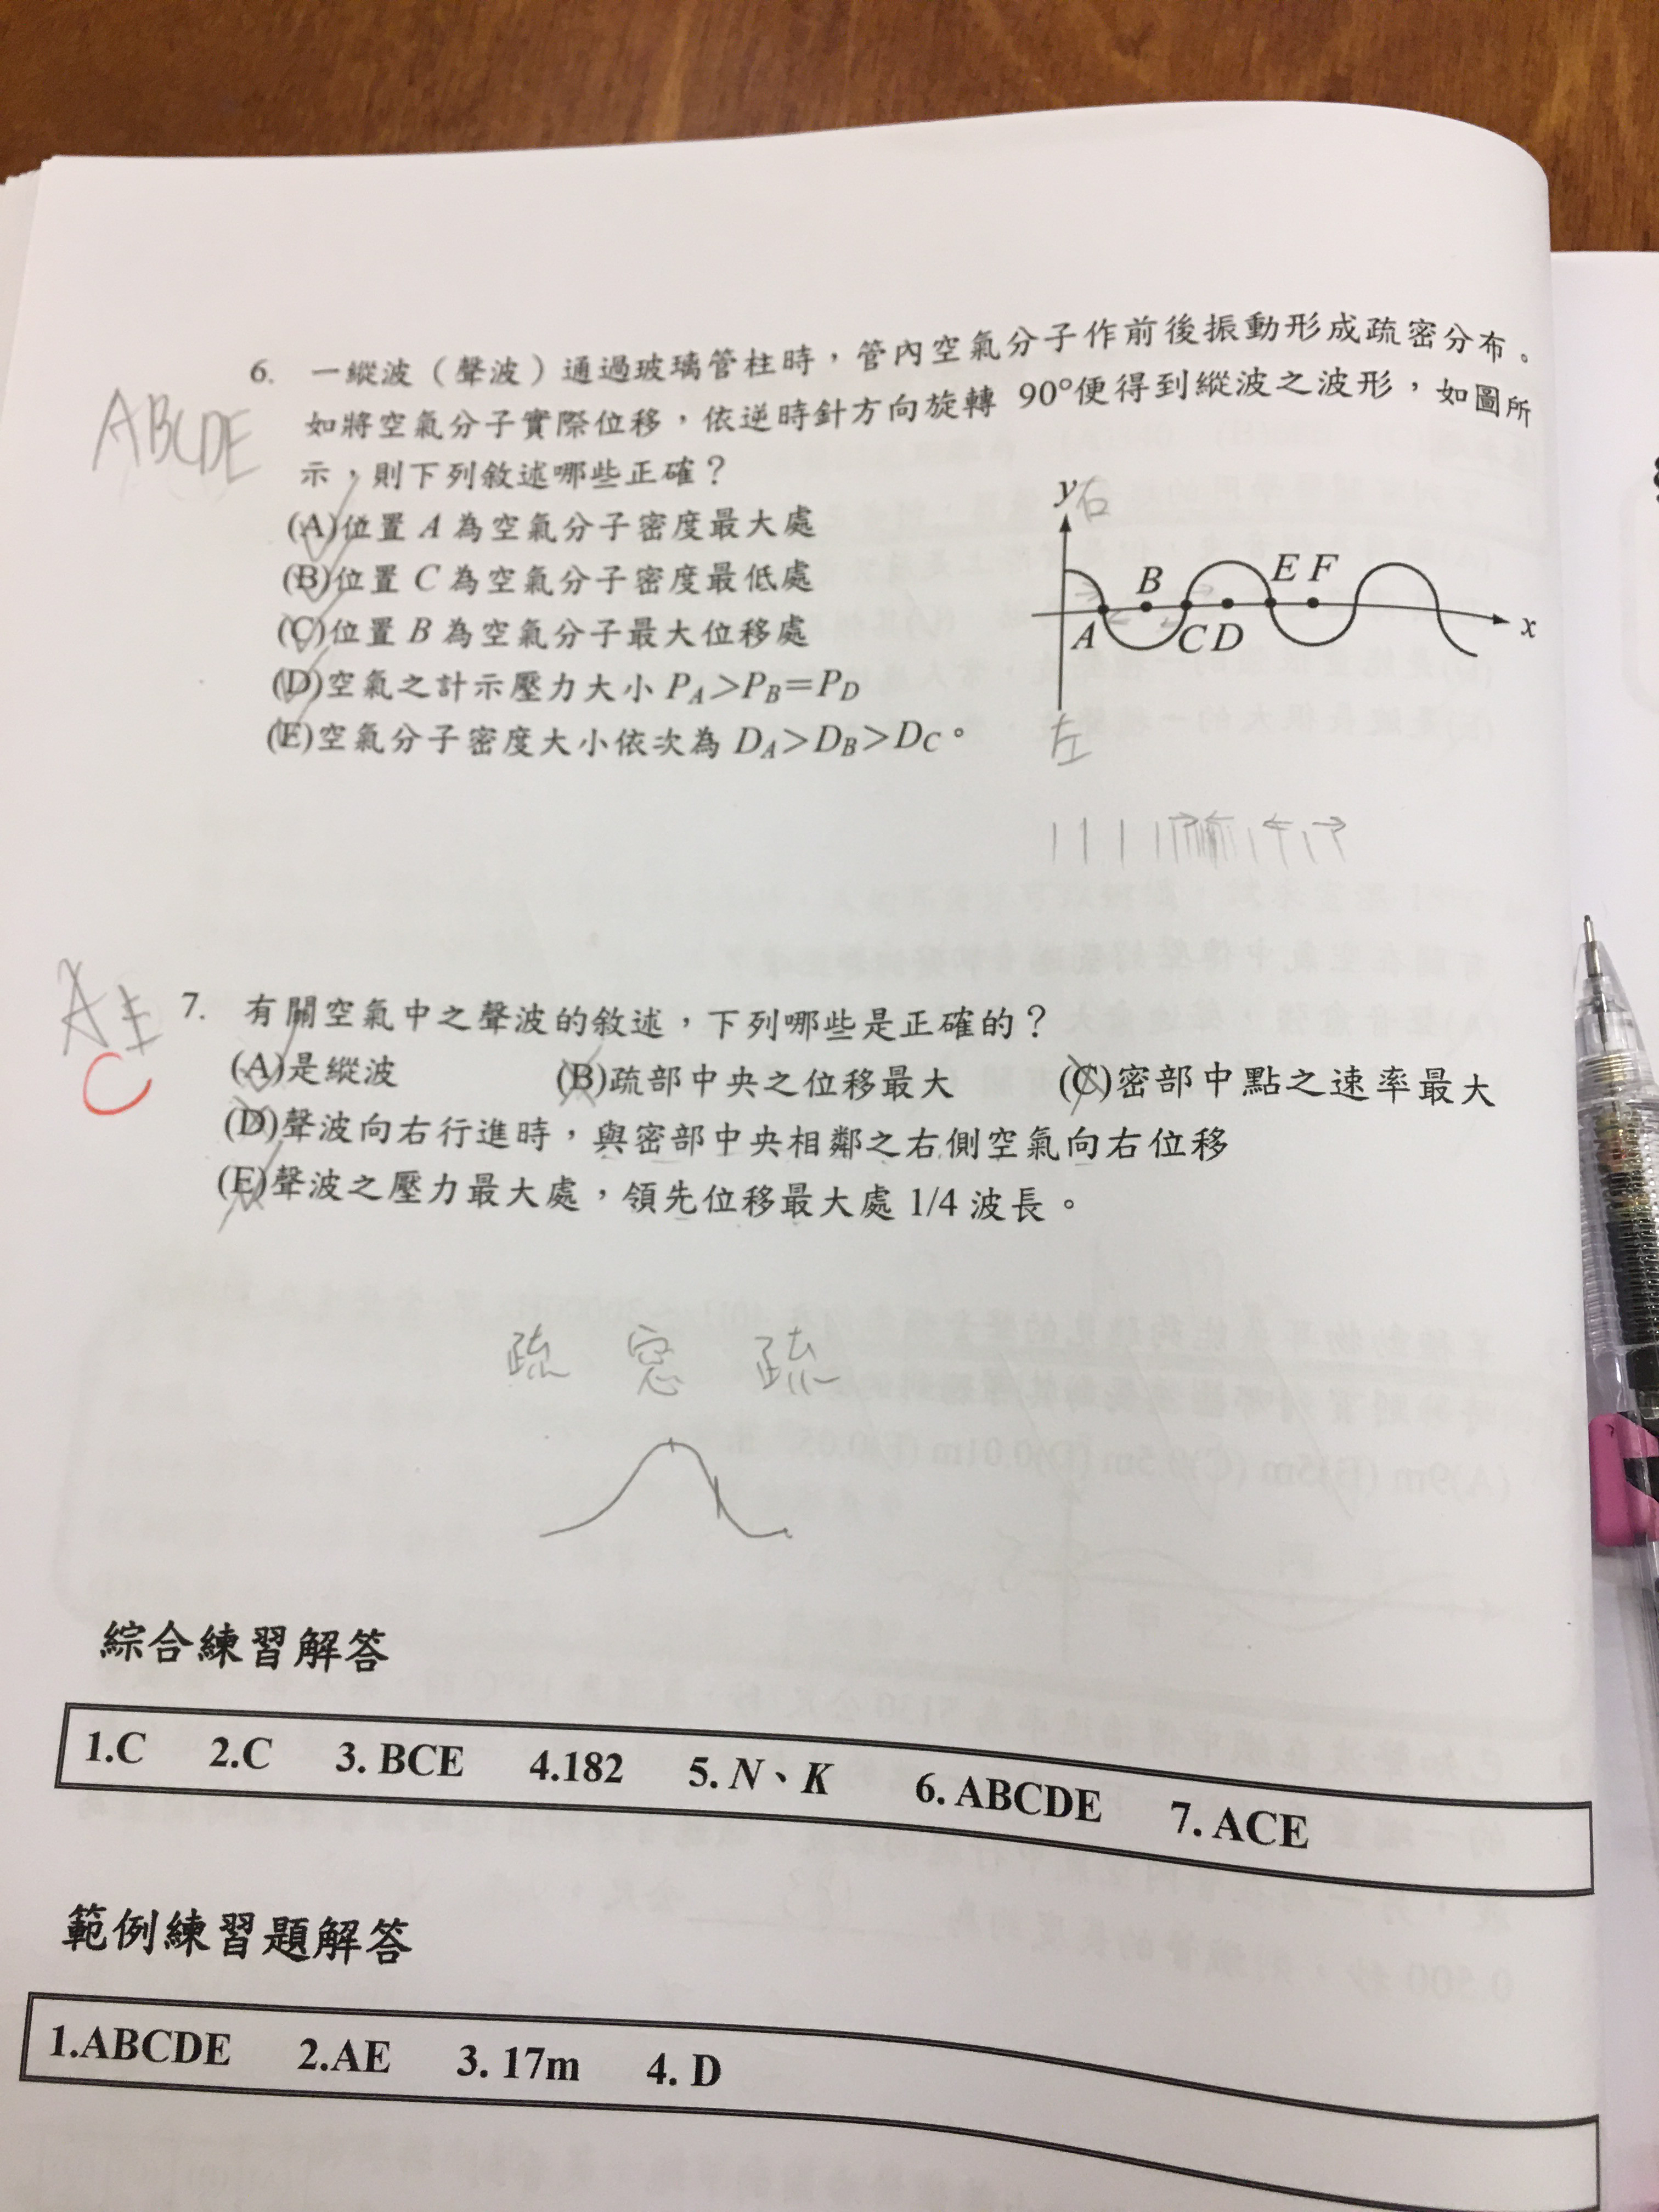 6. 一縱波（聲波）通過玻璃管柱時，管內空氣分子作前後振動形成疏密分布。
ABCDE
如將空氣分子實際位移，依逆時針方向旋轉 90°便得到縱波之波形，如圖所
示，則下列敘述哪些正確？
(A)位置 A 為空氣分子密度最大處
(B)位置 C 為空氣分子密度最低處
(C)位置 B 為空氣分子最大位移處
(D)空氣之計示壓力大小 PA>PB=PD
(E)空氣分子密度大小依次為 DA>DB>DC。
y右
B E F
A C D x
左
AE
C
7. 有關空氣中之聲波的敘述，下列哪些是正確的？
(A)是縱波 (B)疏部中央之位移最大 (C)密部中點之速率最大
(D)聲波向右行進時，與密部中央相鄰之右側空氣向右位移
(E)聲波之壓力最大處，領先位移最大處 1/4 波長。
疏 密 疏
綜合練習解答
1.C 2.C 3. BCE 4.182 5. N、K 6. ABCDE 7. ACE
範例練習題解答
1.ABCDE 2.AE 3. 17m 4. D